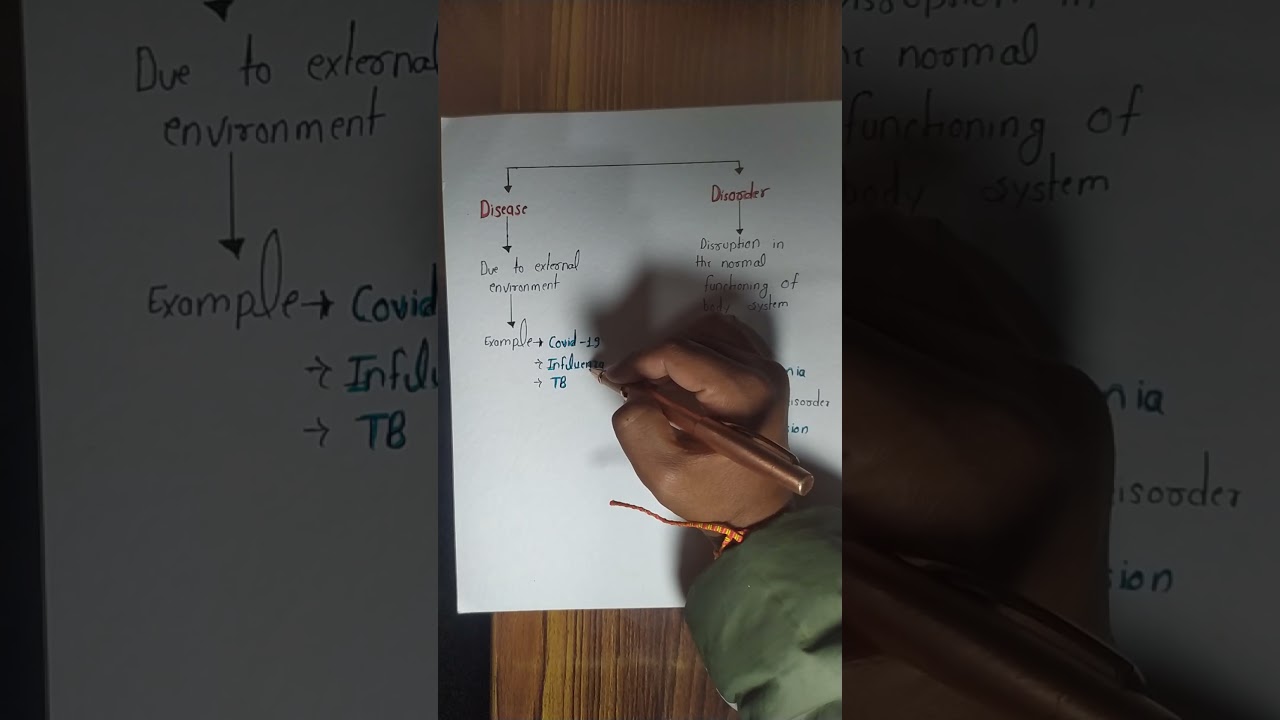 Disease
Due to external
environment
Example → Covid-19
→ Influenza
→ TB
Disorder
Disruption in
the normal
functioning of
body system
nia
isorder
sion